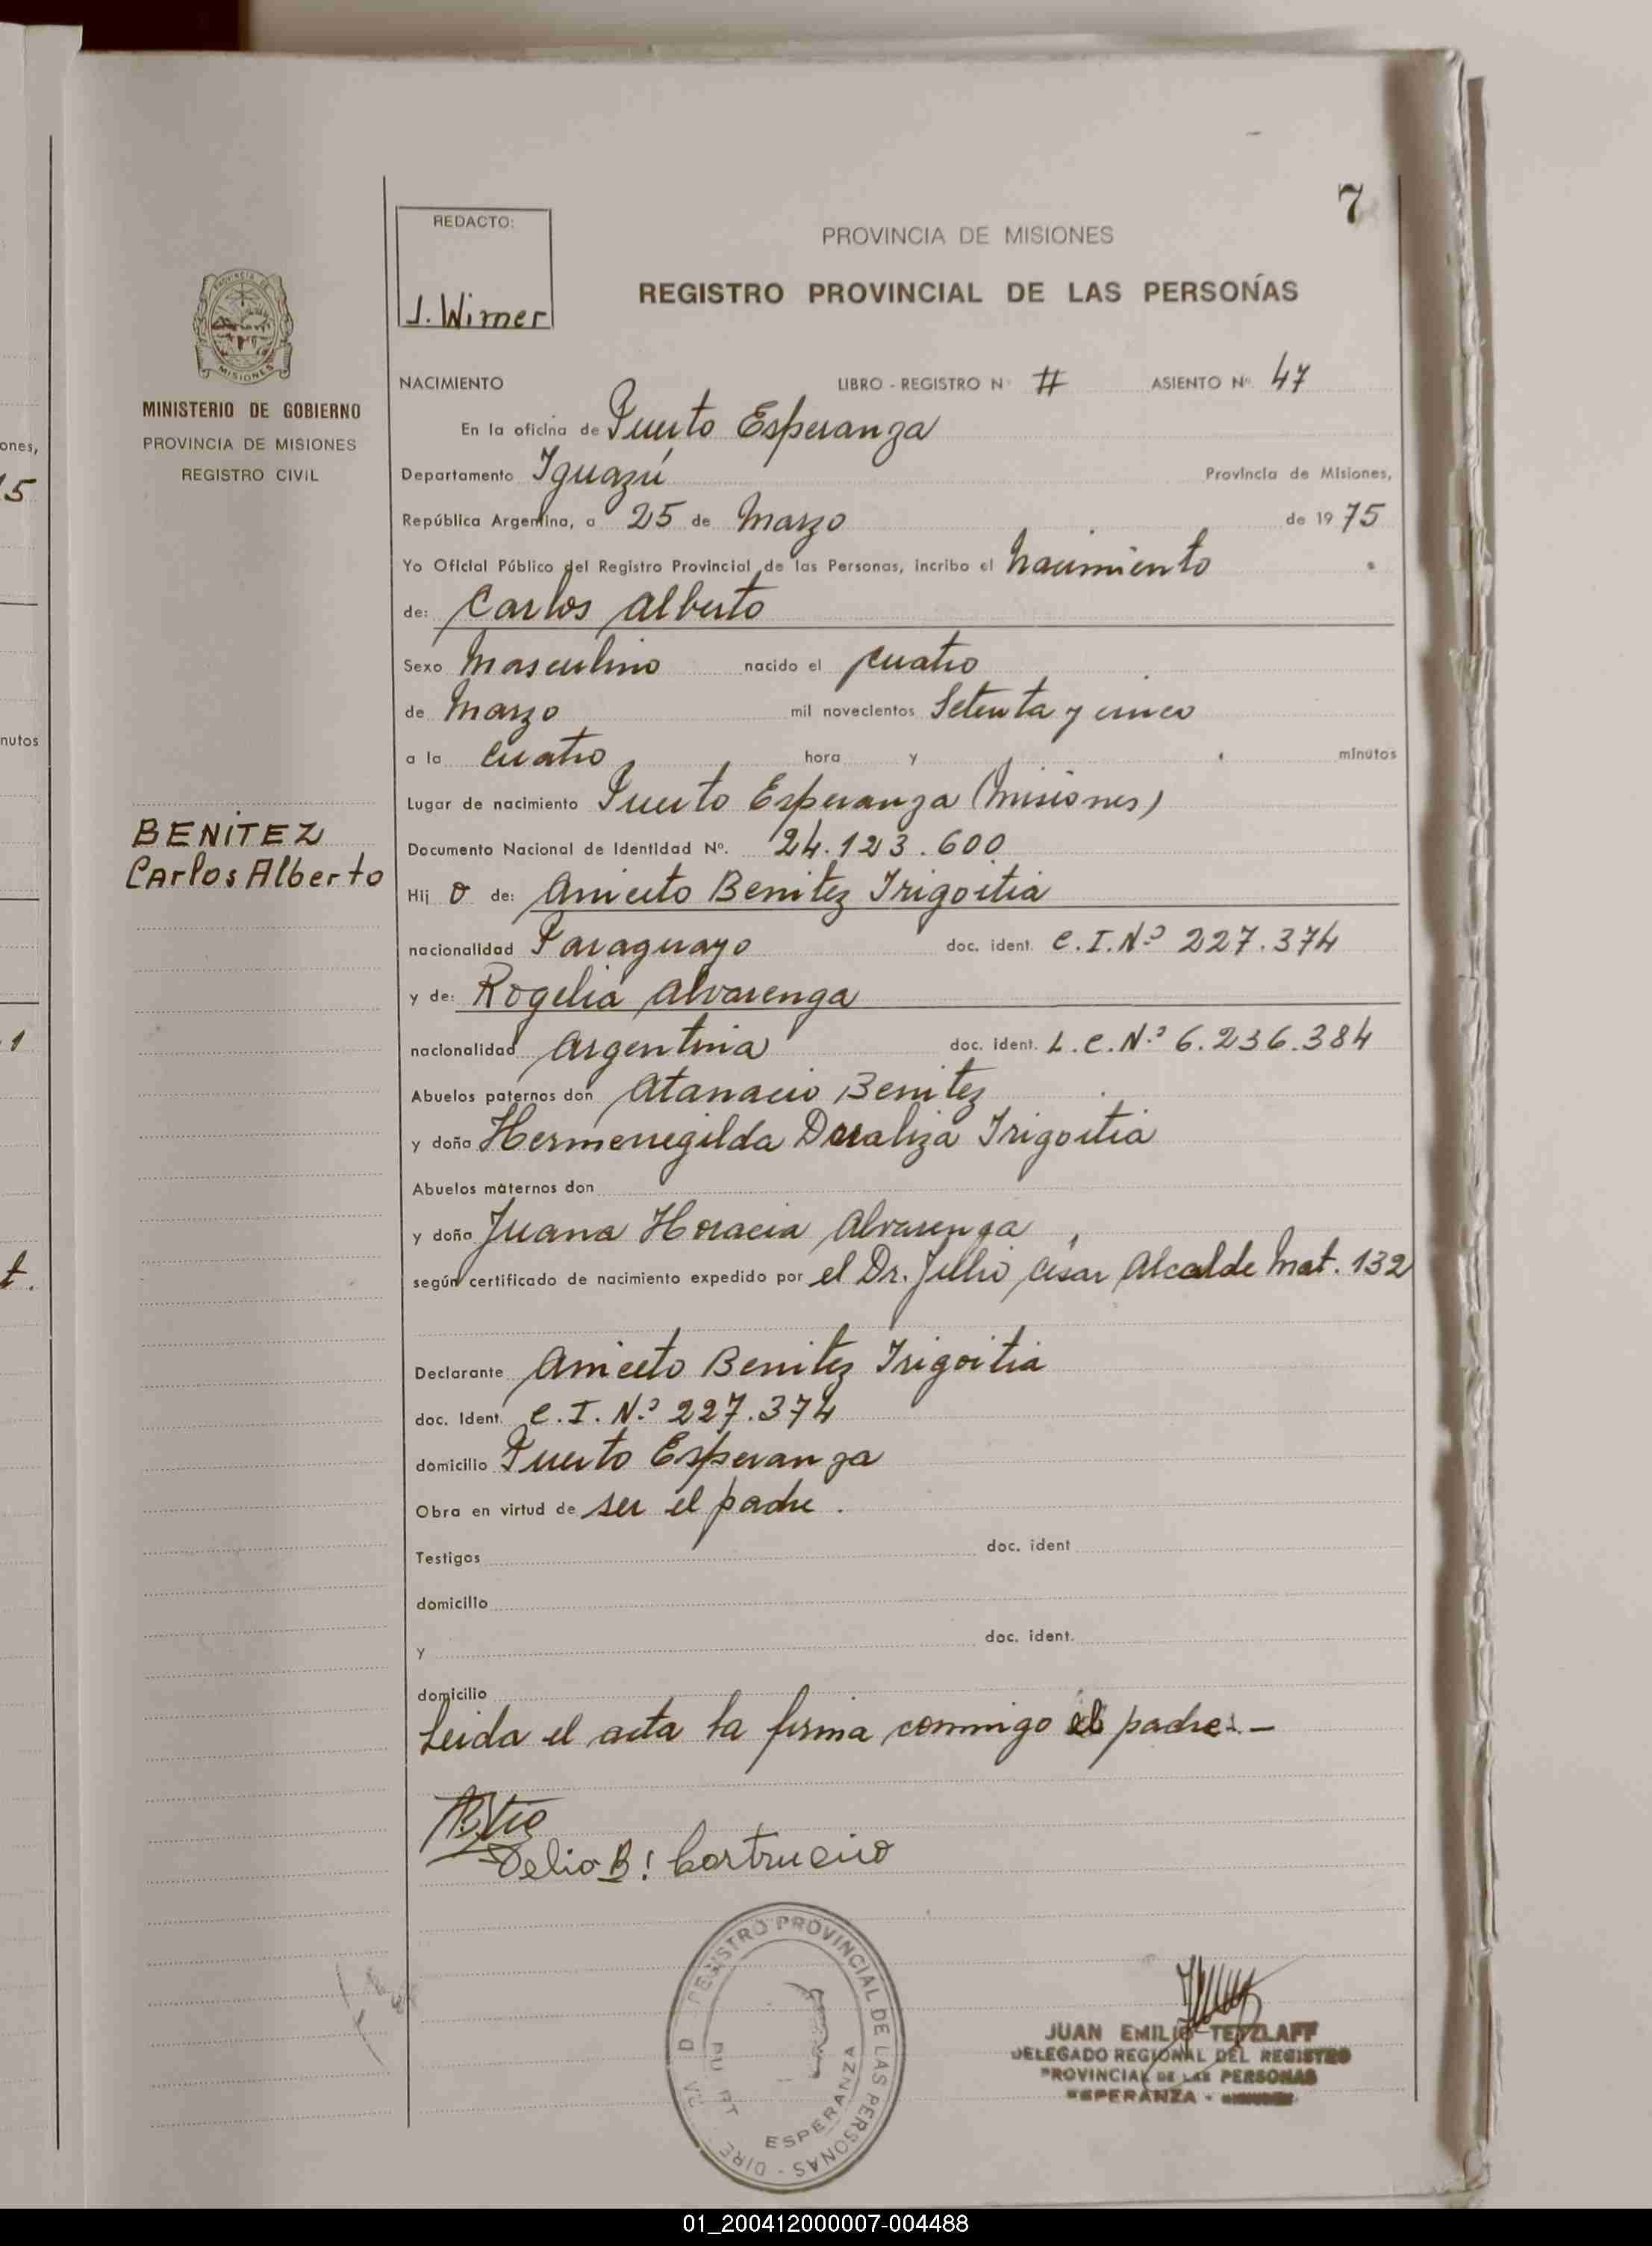 7
REDACTO:
J. Wirner
PROVINCIA DE MISIONES
REGISTRO PROVINCIAL DE LAS PERSONAS
PROVINCIA DE
MISIONES
MINISTERIO DE GOBIERNO
PROVINCIA DE MISIONES
REGISTRO CIVIL
ones,
15
nutos
1
t.
BENITEZ
Carlos Alberto
NACIMIENTO LIBRO - REGISTRO Nº # ASIENTO Nº. 47
En la oficina de Puerto Esperanza
Departamento Iguazú Provincia de Misiones,
República Argentina, a 25 de Marzo de 19 75
Yo Oficial Público del Registro Provincial de las Personas, incribo el Nacimiento
de: Carlos Alberto
Sexo Masculino nacido el cuatro
de Marzo mil novecientos Setenta y cinco
a la cuatro hora y minutos
Lugar de nacimiento Puerto Esperanza (Misiones)
Documento Nacional de Identidad Nº. 24.123.600
Hij o de: Aniceto Benitez Irigoitia
nacionalidad Paraguayo doc. ident. C.I.Nº 227.374
y de: Rogelia Alvarenga
nacionalidad Argentina doc. ident. L.C.Nº 6.236.384
Abuelos paternos don Atanacio Benitez
y doña Hermenegilda Doraliza Irigoitia
Abuelos maternos don
y doña Juana Horacia Alvarenga
según certificado de nacimiento expedido por el Dr. Julio César Alcalde Mat. 132
Declarante Aniceto Benitez Irigoitia
doc. Ident. C.I. Nº 227.374
domicilio Puerto Esperanza
Obra en virtud de ser el padre.
Testigos doc. ident
domicilio
y doc. ident.
domicilio
Leida el acta la firma conmigo el padre.-
Delio B!
REGISTRO PROVINCIAL DE LAS PERSONAS - DIRE
ESPERANZA
JUAN EMILIO TETZLAFF
DELEGADO REGIONAL DEL REGISTRO
PROVINCIAL DE LAS PERSONAS
ESPERANZA -
01_200412000007-004488